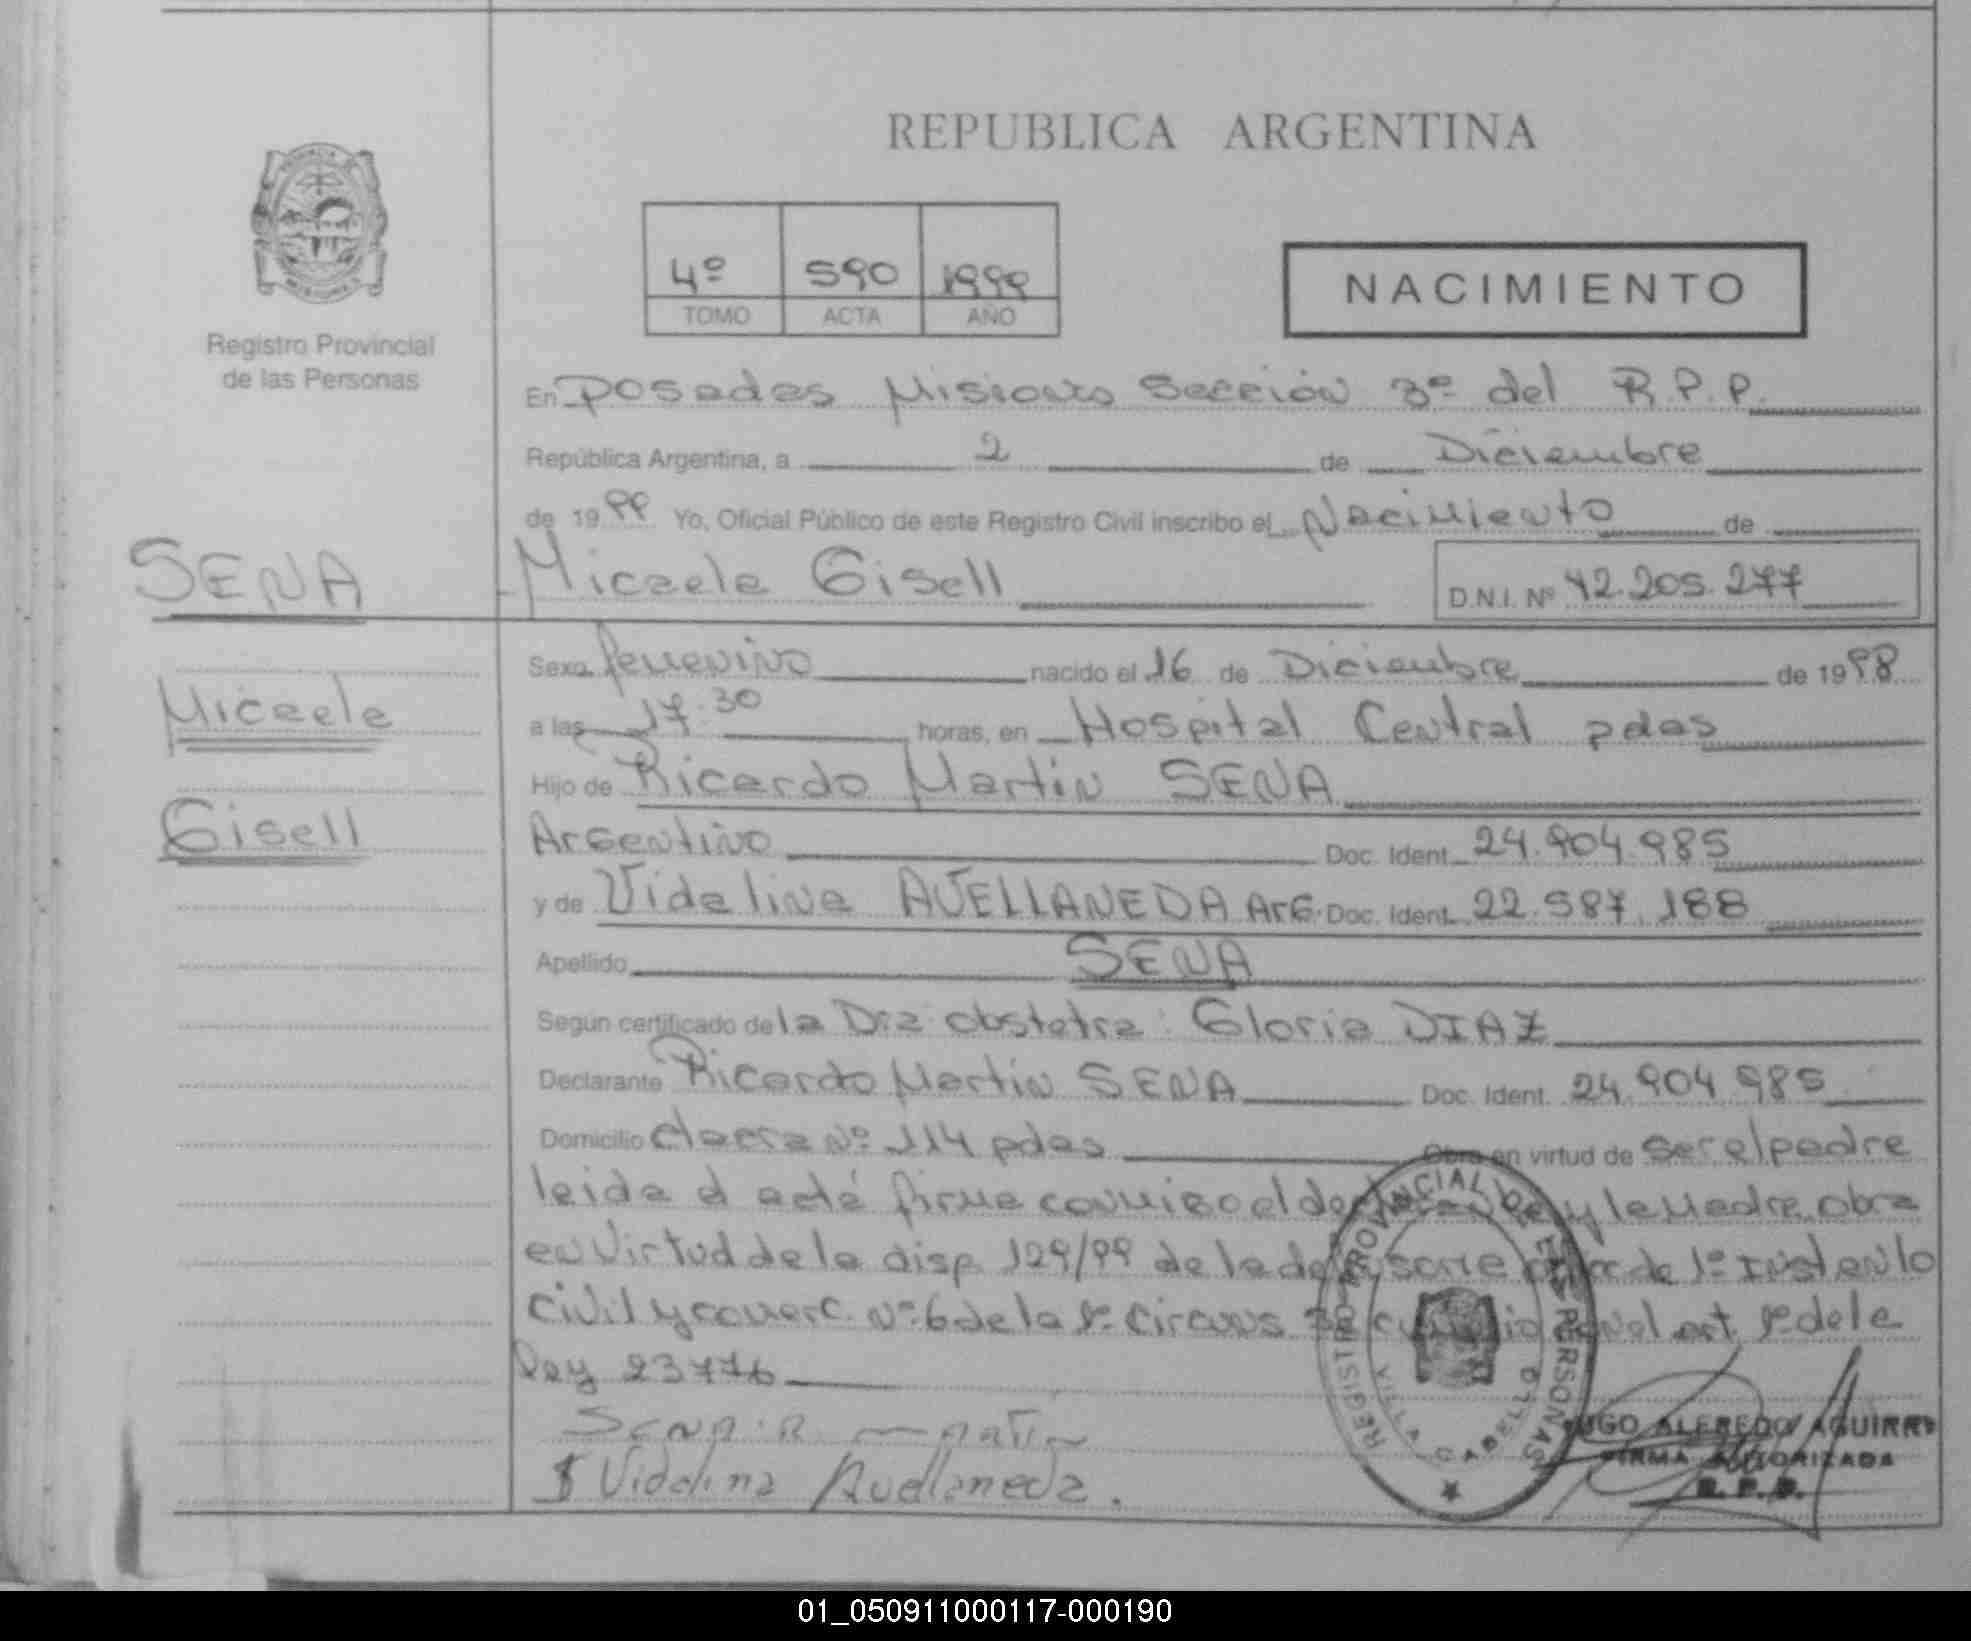 REPUBLICA ARGENTINA
4º 590 1999
TOMO ACTA AÑO
NACIMIENTO
Registro Provincial
de las Personas
En Posadas Misiones Sección 3º del R.P.P.
República Argentina, a 2 de Diciembre
de 1999 Yo, Oficial Público de este Registro Civil inscribo el Nacimiento de
SENA
Micaela Gisell
D.N.I. Nº 42.205.277
Sexo femenino nacido el 16 de Diciembre de 1998
Micaela
a las 17.30 horas, en Hospital Central pdas
Hijo de Ricardo Martin SENA
Gisell
Argentino Doc. Ident. 24.904.985
y de Videlina AVELLANEDA Arg. Doc. Ident. 22.587.188
Apellido SENA
Según certificado de la Dra obstetra: Gloria DIAZ
Declarante Ricardo Martin SENA Doc. Ident. 24.904.985
Domicilio chacra Nº 114 pdas Obra en virtud de ser el padre
leida el acta firma conmigo el y la Madre, obra
en Virtud de la disp. 129/99 de la de 1º Inst en lo
Civil y comerc. Nº 6 de la 1º Circuns el art 1º de la
ley 23776
Sena R. Martin
Videlina Avellaneda.
REGISTRO PROVINCIAL DE LAS PERSONAS
VILLA CABELLO
HUGO ALFREDO AGUIRRE
FIRMA AUTORIZADA
R.P.P.
01_050911000117-000190